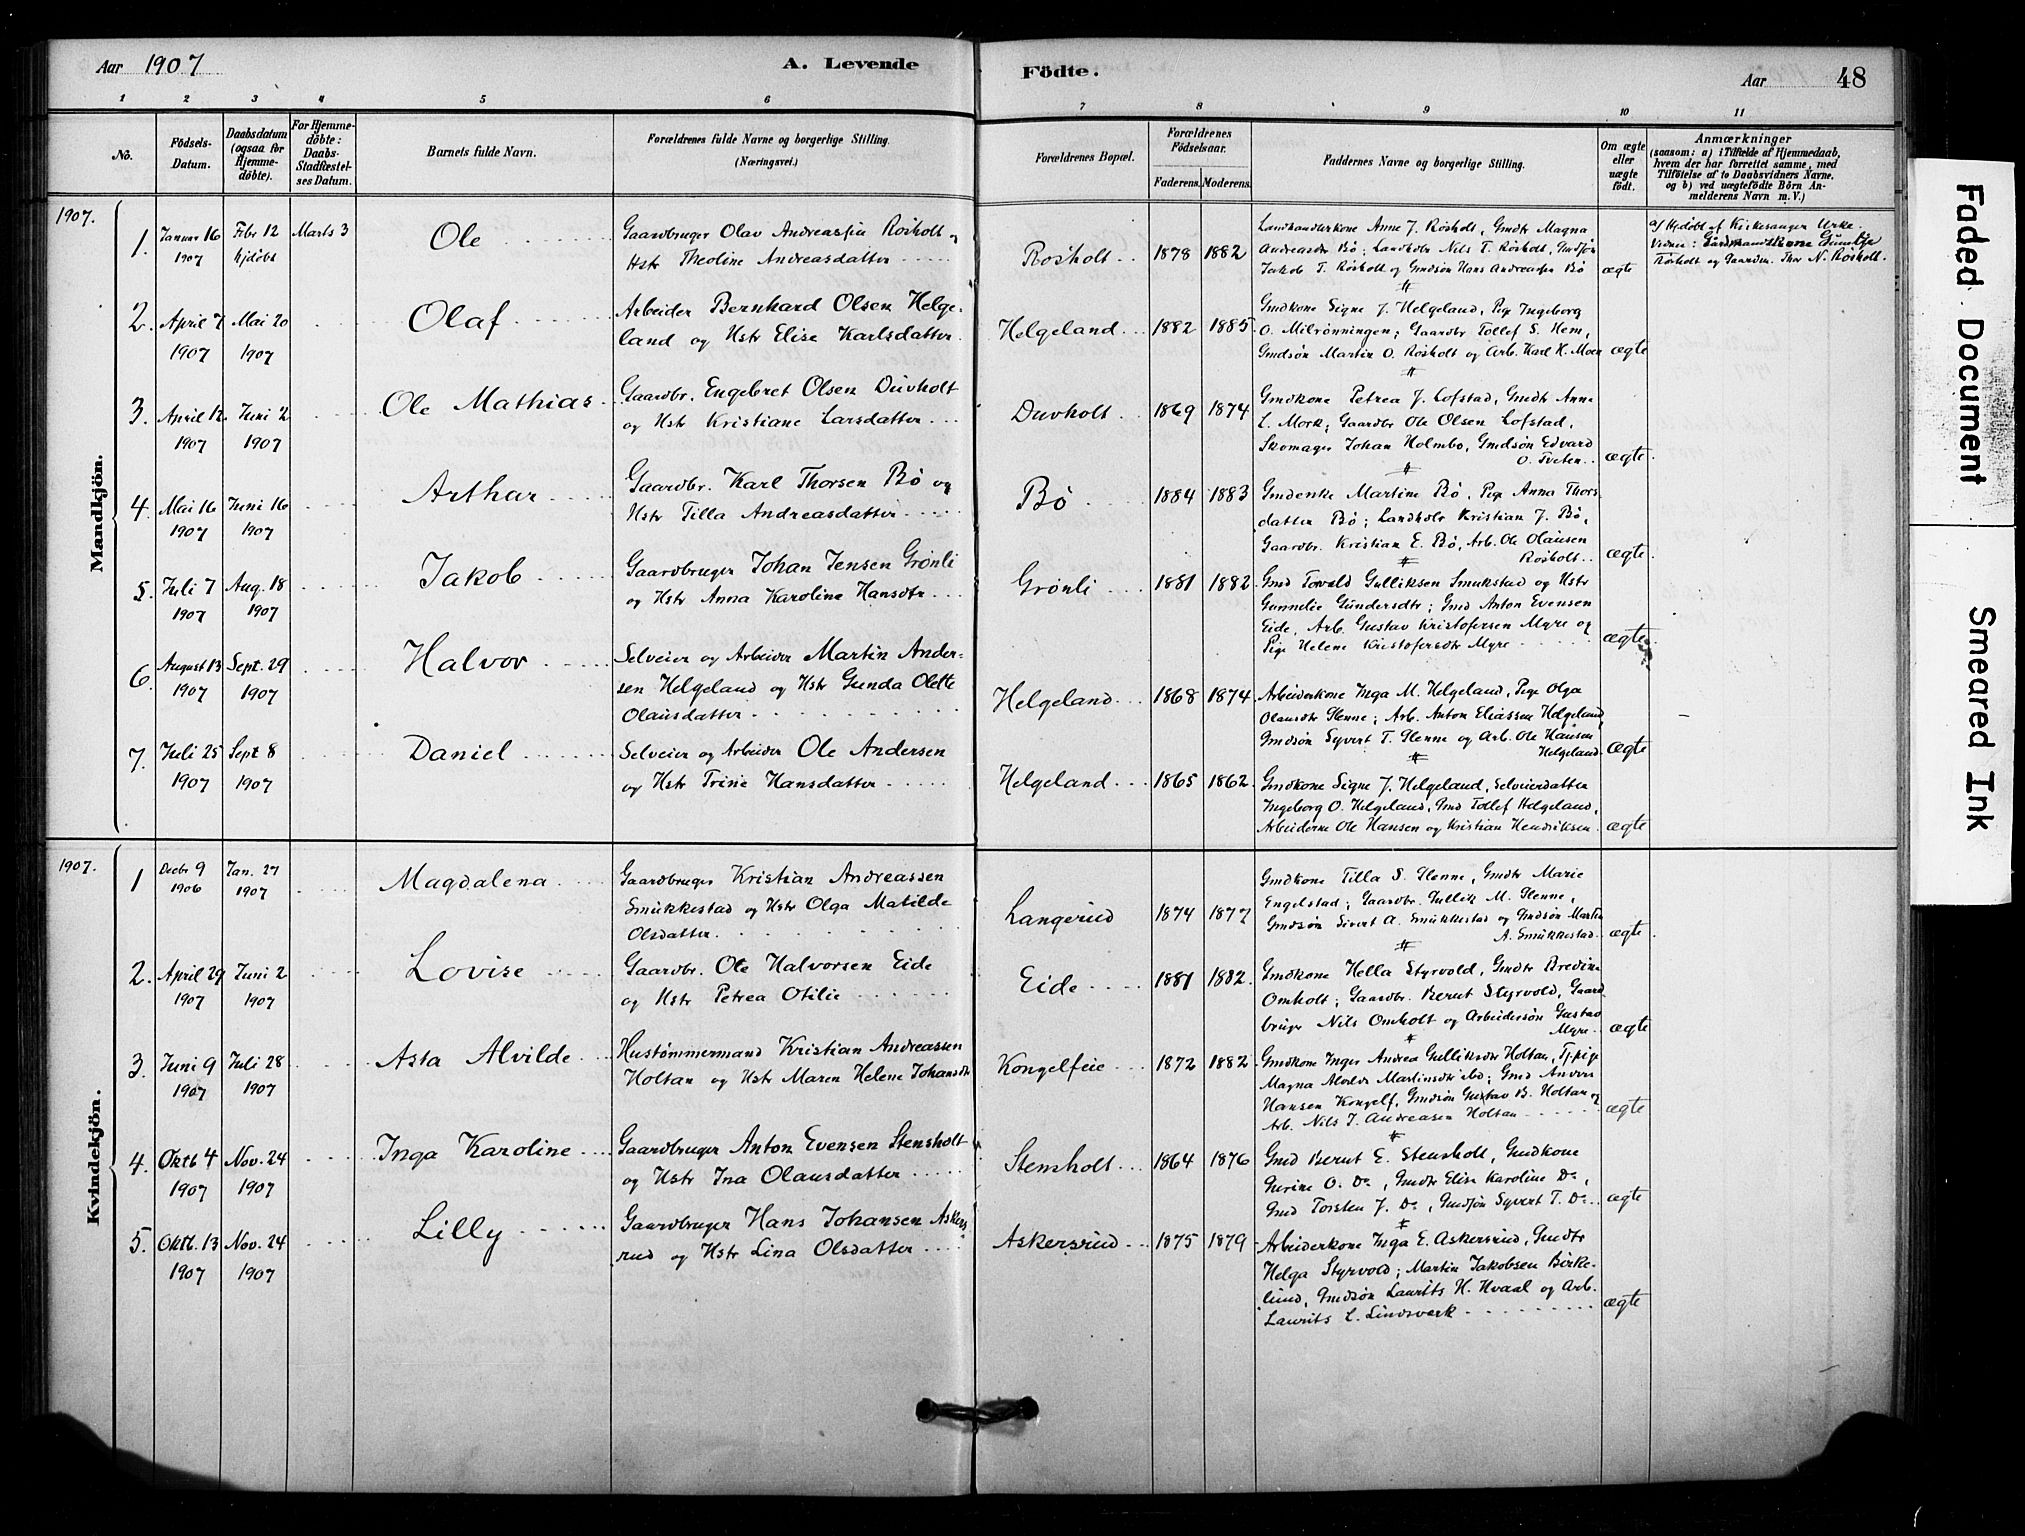 Aar 1907 A. Levende Födte. Aar 48
1 2 3 4 5 6 7 8 9 10 11
No.
Födsels-Datum.
Daabsdatum (ogsaa for Hjemmedöbte).
For Hjemmedöbte: Daabs-Stadfæstelses Datum.
Barnets fulde Navn.
Forældrenes fulde Navne og borgerlige Stilling.
(Næringsvei.)
Forældrenes Bopæl.
Forældrenes Födselsaar.
Faderens. Moderens.
Faddernes Navne og borgerlige Stilling.
Om ægte eller uægte födt.
Anmærkninger
(saasom: a) i Tilfælde af Hjemmedaab,
hvem der har forrettet samme, med
Tilföielse af to Daabsvidners Navne,
og b) ved uægtefödte Börn An-
melderens Navn m. V.)
Mandkjön.
1907.
1. Januar 16 1907 Febr 12 hjdøbt Marts 3 Ole
Gaardbruger Olav Andreassen Rosholt og
Hstr Theoline Andreasdatter
Rosholt 1878 1882
Landhandlerkone Anne J. Rosholt, Gmdtr Magna
Andreasdtr Bö; Landhdlr Nils T. Rosholt, Gmdsön
Jakob T. Rosholt og Gmdsön Hans Andreassen Bö
ægte
a/ Hjdöbt af Kirkesanger Urke.
Vidner: Landhandlkone
Rosholt og Gaardm. Thor N. Rosholt.
2. April 7 1907 Mai 20 1907 Olaf
Arbeider Bernhard Olsen Helge-
land og Hstr Elise Karlsdatter
Helgeland 1882 1885
Gmdkone Signe J. Helgeland, Pige Ingeborg
O. Milrönningen; Gaardbr Tollef S. Hem,
Gmdsön Martin O. Rosholt og Arb. Karl H. Moen
ægte
3. April 12 1907 Juni 2 1907 Ole Mathias
Gaardbr. Engebret Olsen Duvholt
og Hstr Kristiane Larsdatter
Duvholt 1869 1874
Gmdkone Petrea J. Lofstad, Gmdtr Anne
L. Mork; Gaardbr Ole Olsen Lofstad,
Skomager Johan Holmbo, Gmdsön Edvard
O. Tveten.
ægte
4. Mai 16 1907 Juni 16 1907 Arthur
Gaardbr. Karl Thorsen Bö og
Hstr Tilla Andreasdatter
Bö 1884 1883
Gmdenke Martine Bö, Pige Anna Thors
datter Bö; Landhdlr Kristian J. Bö,
Gaardbr. Kristian E. Bö, Arb. Ole Olausen
Rosholt
ægte
5. Juli 7 1907 Aug. 18 1907 Jakob
Gaardbruger Johan Jensen Grönli
og Hstr Anna Karoline Hansdtr
Grönli 1881 1882
Gmd Torvald Gulliksen Smukstad og Hstr
Gunnelie Gundersdtr; Gmd Anton Evensen
Eide, Arb. Gustav Kristofersen Myre og
Pige Helene Kristofersdtr Myre
ægte
6. August 13 1907 Sept. 29 1907 Halvor
Selveier og Arbeider Martin Ander-
sen Helgeland og Hstr Gunda Olette
Olausdatter
Helgeland 1868 1874
Arbeiderkone Inga M. Helgeland, Pige Olga
Olausdtr Henne; Arb. Anton Eliassen Helgeland,
Gmdsön Syvert T. Henne og Arb. Ole Hansen
Helgeland
ægte
7. Juli 25 1907 Sept 8 1907 Daniel
Selveier og Arbeider Ole Andersen
og Hstr Trine Hansdatter
Helgeland 1865 1862
Gmdkone Signe J. Helgeland, Selveierdatter
Ingeborg O. Helgeland, Gmd Tollef Helgeland,
Arbeiderne Ole Hansen og Kristian Hendriksen
ægte
Kvindekjön.
1907.
1 Decbr 9 1906 Jan. 27 1907 Magdalena
Gaardbruger Kristian Andreassen
Smukkestad og Hstr Olga Matilde
Olsdatter
Langerud 1874 1877
Gmdkone Tilla S. Henne, Gmdtr Marie
Engelstad; Gaardbr. Gullik M. Henne,
Gmdsön Sivert A. Smukkestad og Gmdsön Martin
A. Smukkestad
ægte
2. April 29 1907 Juni 2 1907 Lovise
Gaardbr. Ole Halvorsen Eide
og Hstr Petrea Otilie
Eide 1881 1882
Gmdkone Hella Styrvold, Gmdtr Bredine
Omholt; Gaardbr. Bernt Styrvold, Gaard-
bruger Nils Omholt og Arbeidersön Gustav
Myre
ægte
3. Juni 9 1907 Juli 28 1907 Asta Alvilde
Hustömmermand Kristian Andreassen
Holtan og Hstr Maren Helene Johansdtr
Kongelfeie 1872 1882
Gmdkone Inger Andrea Gulliksdtr Holtan, Tj.pige
Magna Alvilde Martinsdtr ibd; Gmd Anders
Hansen Kongelf, Gmdsön Gustav B. Holtan og
Arb. Nils J. Andreasen Holtan
ægte
4. Oktb 4 1907 Nov. 24 1907 Inga Karoline
Gaardbruger Anton Evensen Stensholt
og Hstr Ina Olausdatter
Stensholt 1864 1876
Gmd Bernt E. Stensholt, Gmdkone
Gurine O. Do, Gmdtr Elise Karoline Do,
Gmd Torsten J. Do, Gmdsön Syvert T. Do
ægte
5. Oktb. 13 1907 Nov. 24 1907 Lilly
Gaardbruger Hans Johansen Askers
rud og Hstr Lina Olsdatter
Askersrud 1875 1879
Arbeiderkone Inga E. Askersrud, Gmdtr
Helga Styrvold; Martin Jakobsen Birke-
lund, Gmdsön Laurits H. Hvaal og Arb.
Laurits L. Lindsverk
ægte
Faded Document
Smeared Ink